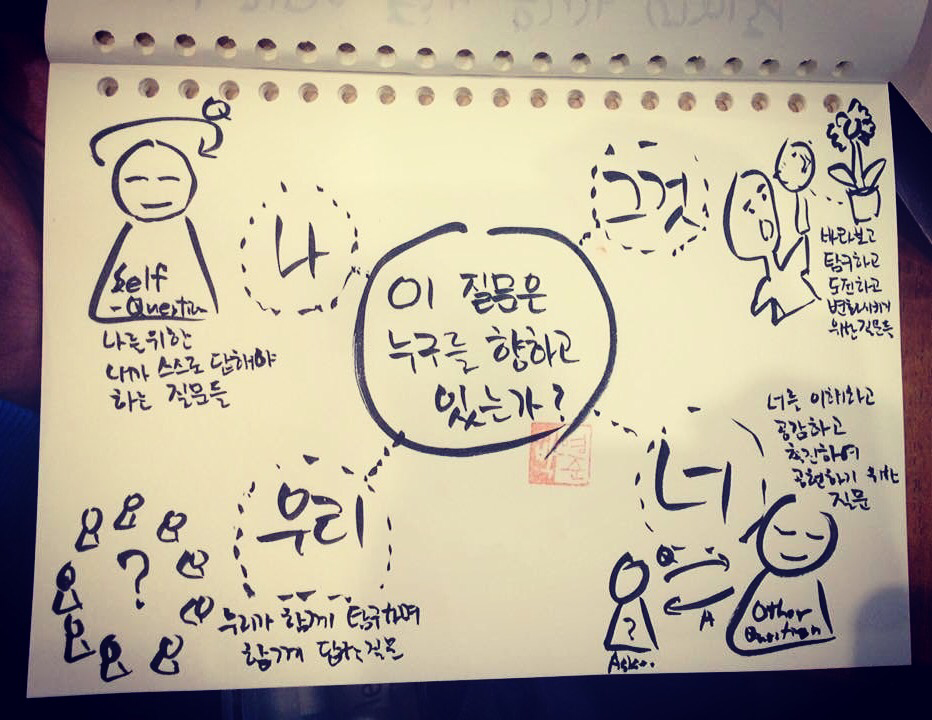 Q
Self
-Question
나
나를 위한
내가 스스로 답해야
하는 질문들
이 질문은
누구를 향하고
있는가?
그것
바라보고
탐구하고
도전하고
변화시키기
위한 질문들
우리
?
우리가 함께 탐구하며
함께 답할 질문
너
너를 이해하고
공감하고
촉진하며
공헌하기 위한
질문
Q
A
?
Other
Question